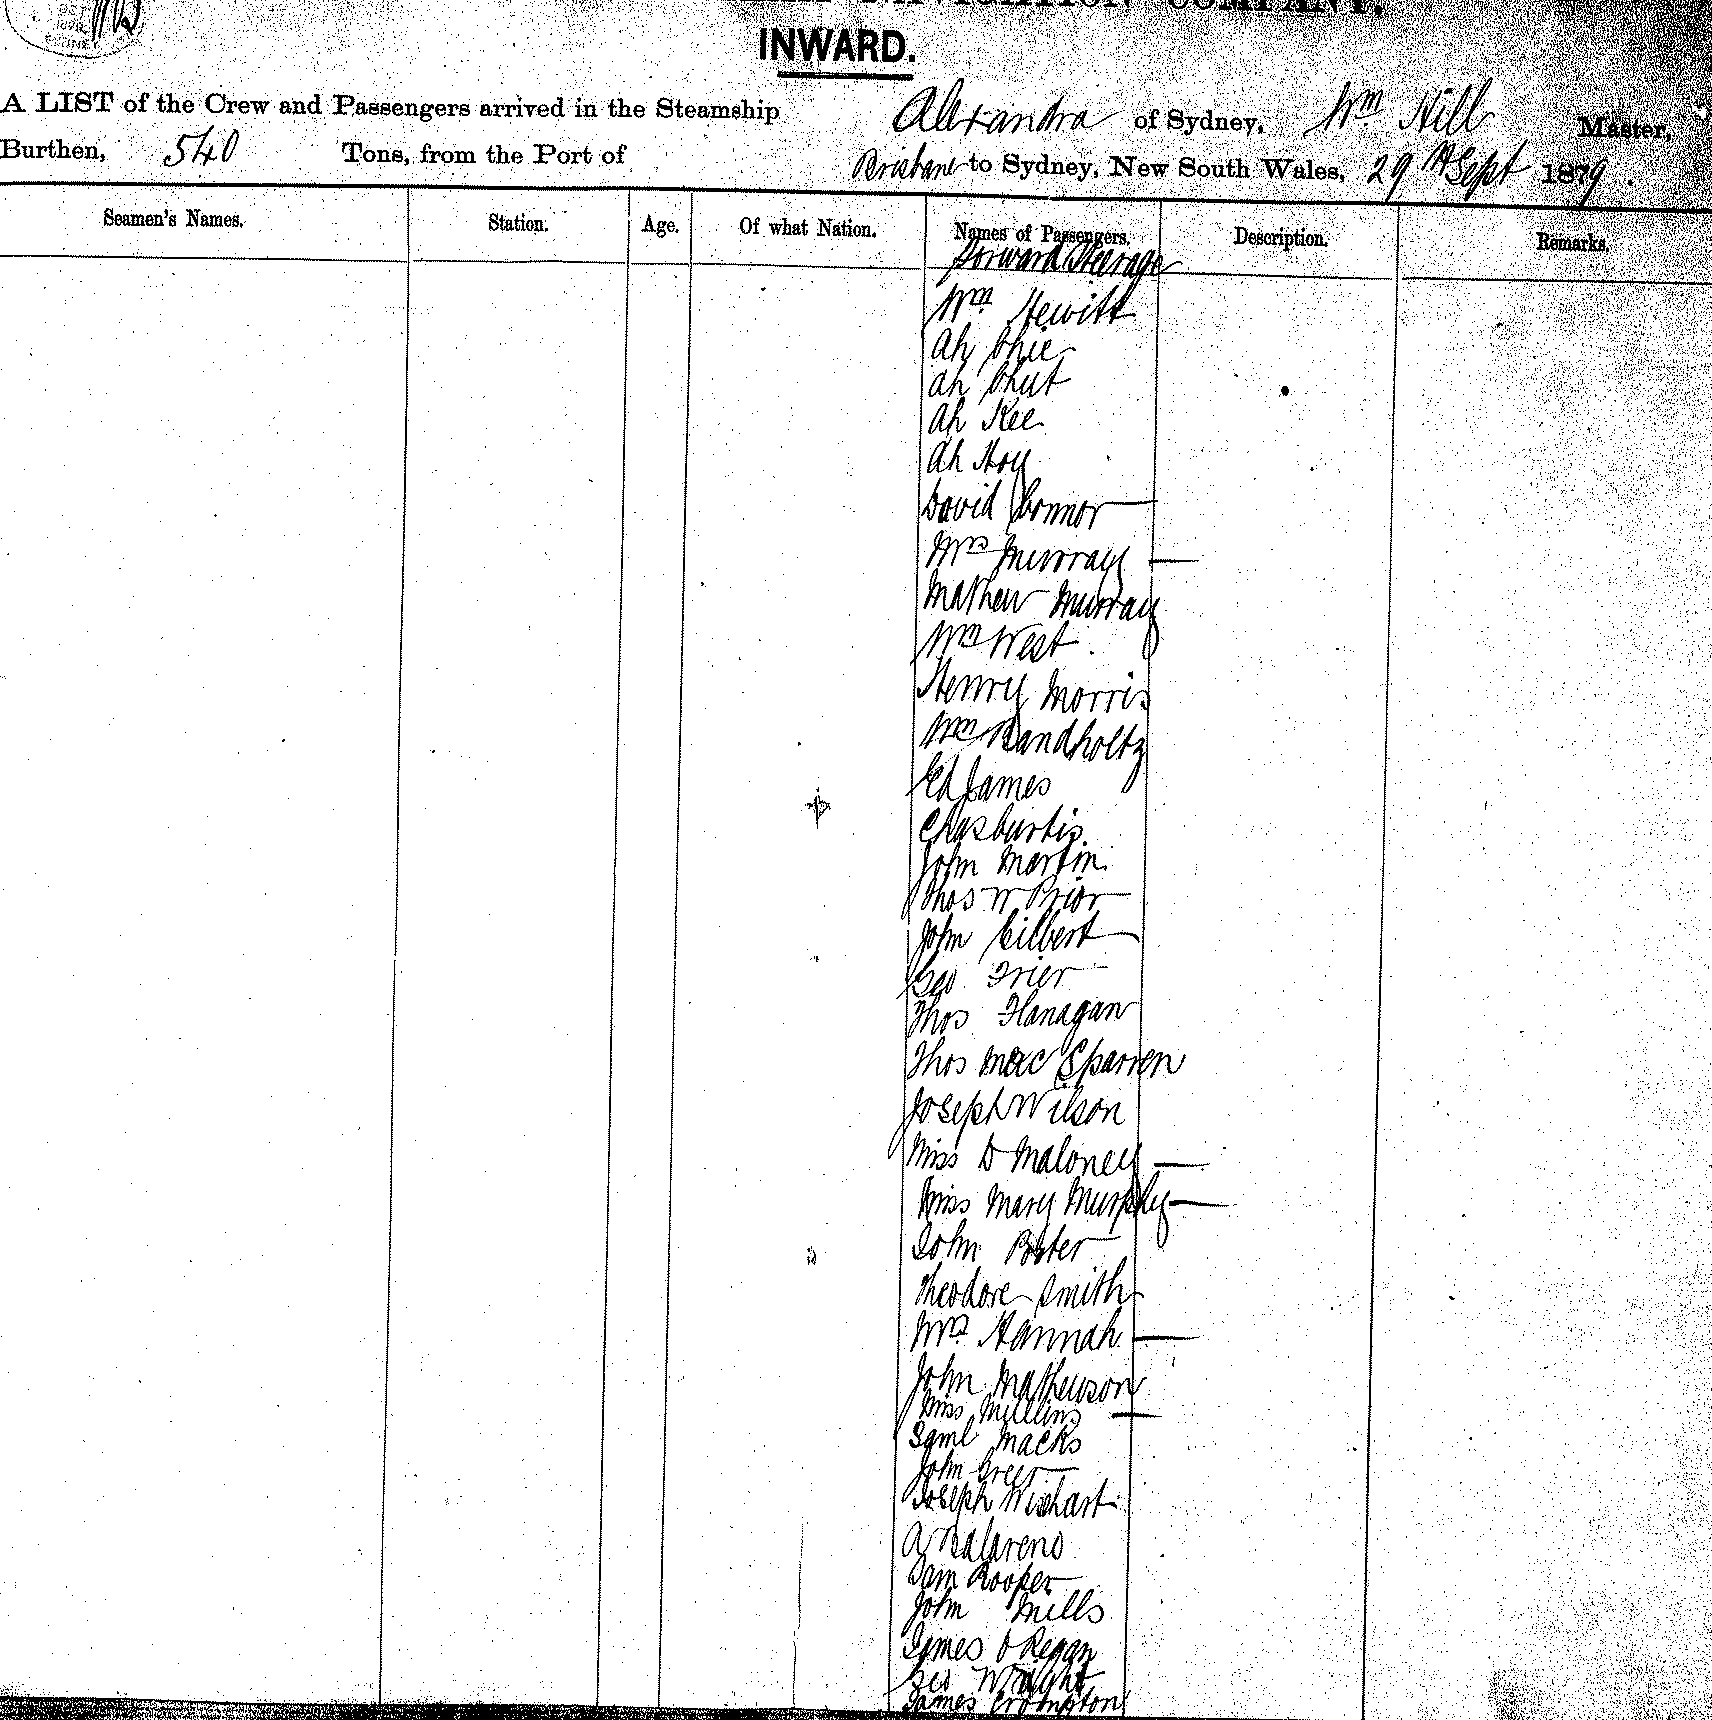 NAVIGATION COMPANY.
INWARD.
A LIST of the Crew and Passengers arrived in the Steamship Alexandra of Sydney, Wm Hill Master,
Burthen, 540 Tons, from the Port of Brisbane to Sydney, New South Wales, 29th Sept 1879.
Seamen's Names. Station. Age. Of what Nation. Names of Passengers. Description. Remarks.
Forward Steerage
Wm Hewitt
Ah Chie
Ah Chut
Ah Kee
Ah Hoy
David Connor
Mrs Murray
Mathew Murray
Wm West
Henry Morris
Wm Bandholtz
Ed James
Chas Curtis
John Martin
Thos W Prior
John Gilbert
Geo Frier
Thos Flanagan
Thos Mac Sparren
Joseph Wilson
Miss D Maloney
Miss Mary Murphy
John Porter
Theodore Smith
Mrs Hannah
John Mathewson
Miss Mullins
Saml Macks
John Greer
Joseph Wishart
A
Sam Hooper
John Mills
James O Regan
Geo Wright
James Crompton